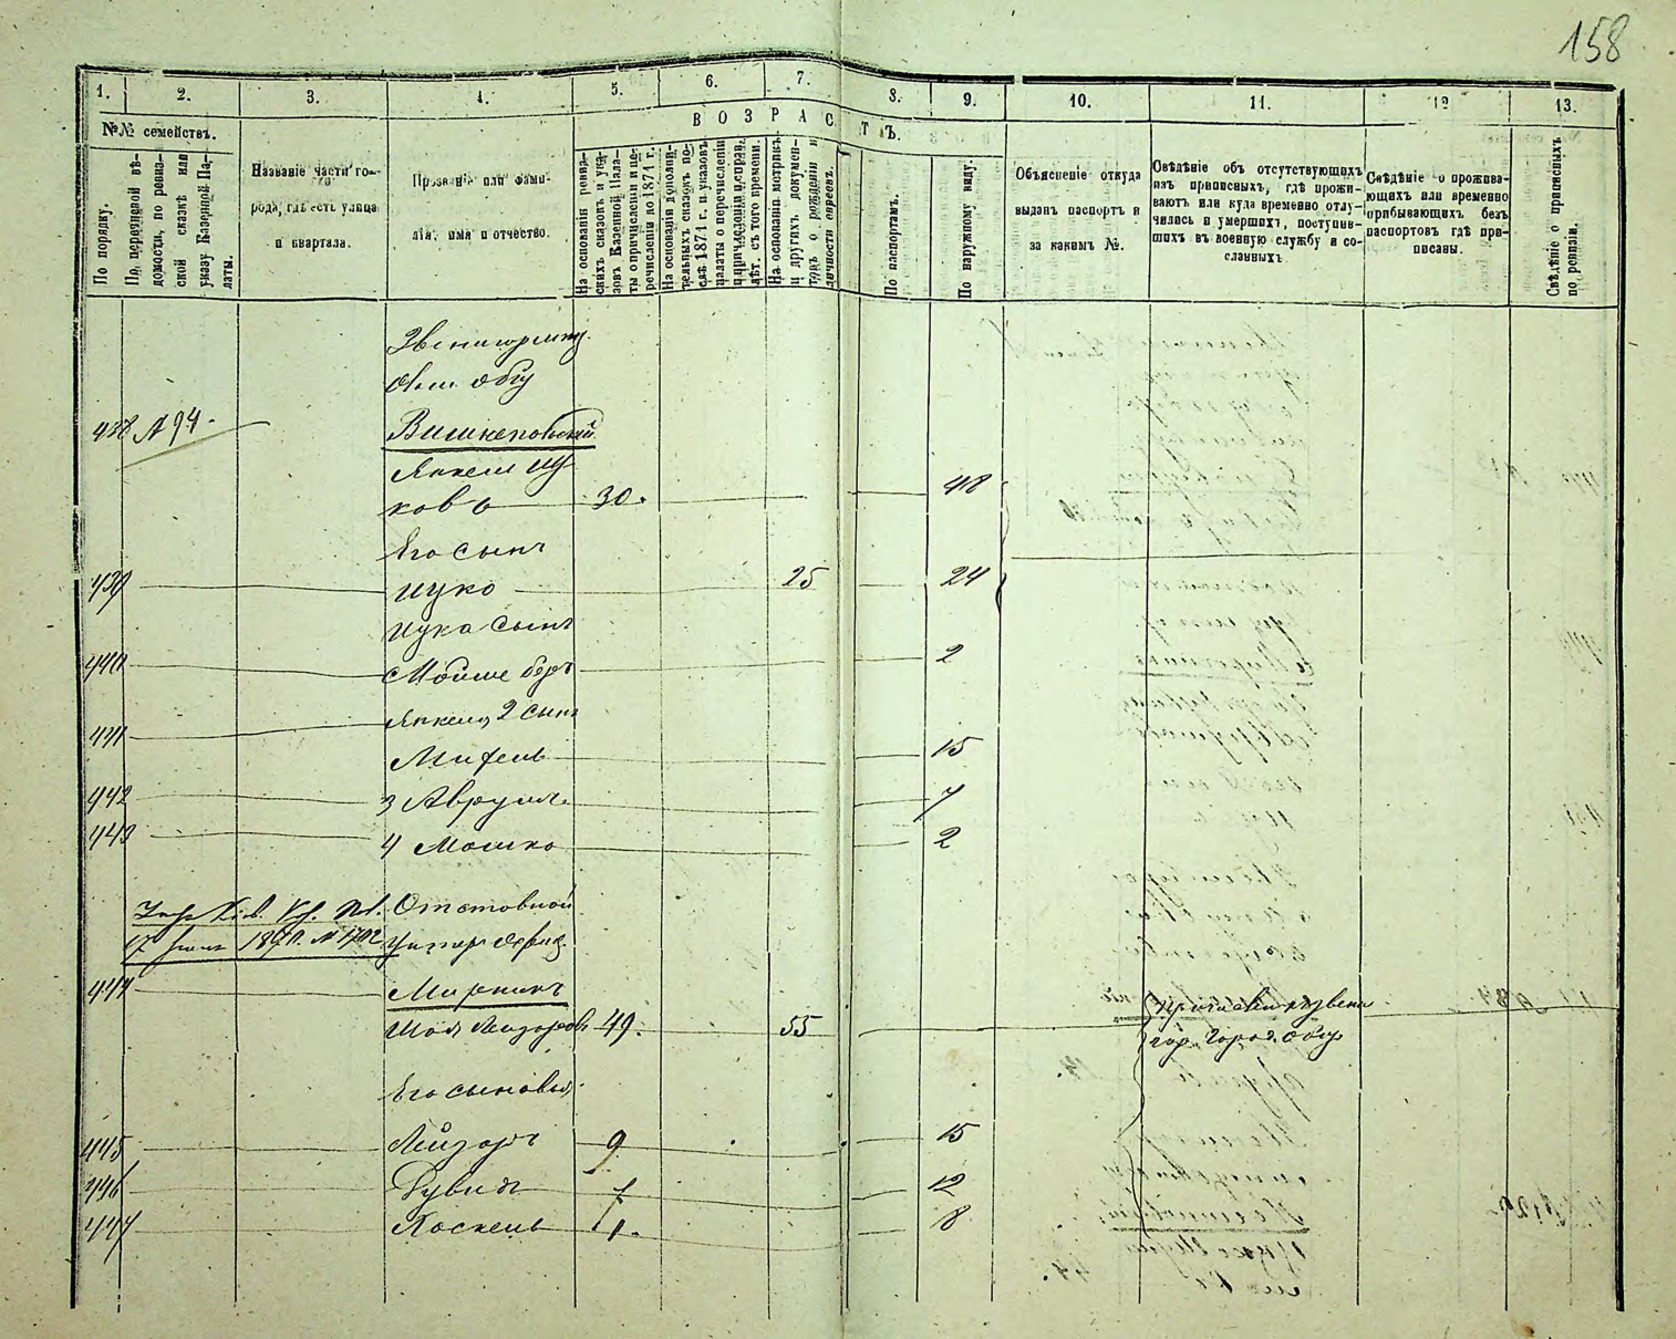 158
1. 2. 3. 4. 5. 6. 7. 8. 9. 10. 11. 12 13.
№№ семействъ.
В О З Р А С Т Ъ.
По порядку.
По перечневой вѣ-
домости, по ревиз-
ской сказкѣ или
указу Казенной Па-
латы.
Названіе части го-
рода, гдѣ есть улица
и квартала.
Прозваніе или фами-
лія, имя и отчество.
На основаніи ревиз-
скихъ сказокъ и ука-
зовъ Казенной Пала-
ты о причисленіи и пе-
речисленіи до 1874 г.
На основаніи дополни-
тельныхъ сказокъ по-
слѣ 1874 г. и указовъ
палаты о перечисленіи
и причисленіи и справ.
лѣт. съ того времени.
На основаніи метрикъ
и другихъ докумен-
товъ о рожденіи и
личности евреевъ.
По паспортамъ.
По наружному виду.
Объясненіе откуда
выданъ паспортъ и
за какимъ №.
Свѣдѣніе объ отсутствующихъ
изъ приписныхъ, гдѣ прожи-
ваютъ или куда временно отлу-
чились и умершихъ, поступив-
шихъ въ военную службу и со-
сланныхъ
Свѣдѣніе о прожива-
ющихъ или временно
прибывающихъ безъ
паспортовъ гдѣ при-
писаны.
Свѣдѣніе о приписныхъ
по ревизіи.
Общ
438 № 94. Вишнепольскій
Янкель Иц
ковъ 30. 48
Его сынъ
439 Ицко 25 24
Ицка сынъ
440 Мойше Беръ 2
441 Янкеля 2 сынъ
Михель 15
442 3 Аврумъ 7
443 4 Мошко 2
Отставной
17 1870. № 1702 Унтеръ Офиц.
444 Мирникъ
Шая Лейзеровъ 49. 55
Его сыновья
445 Лейзоръ 9 15
446 Дувидъ 12
447 Хаскель 1. 8